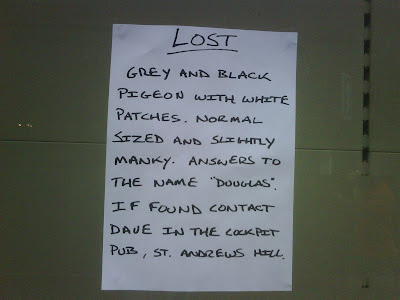 LOST
GREY AND BLACK
PIGEON WITH WHITE
PATCHES. NORMAL
SIZED AND SLIGHTLY
MANKY. ANSWERS TO
THE NAME "DOUGLAS".
IF FOUND CONTACT
DAVE IN THE COCKPIT
PUB, ST. ANDREWS HILL.